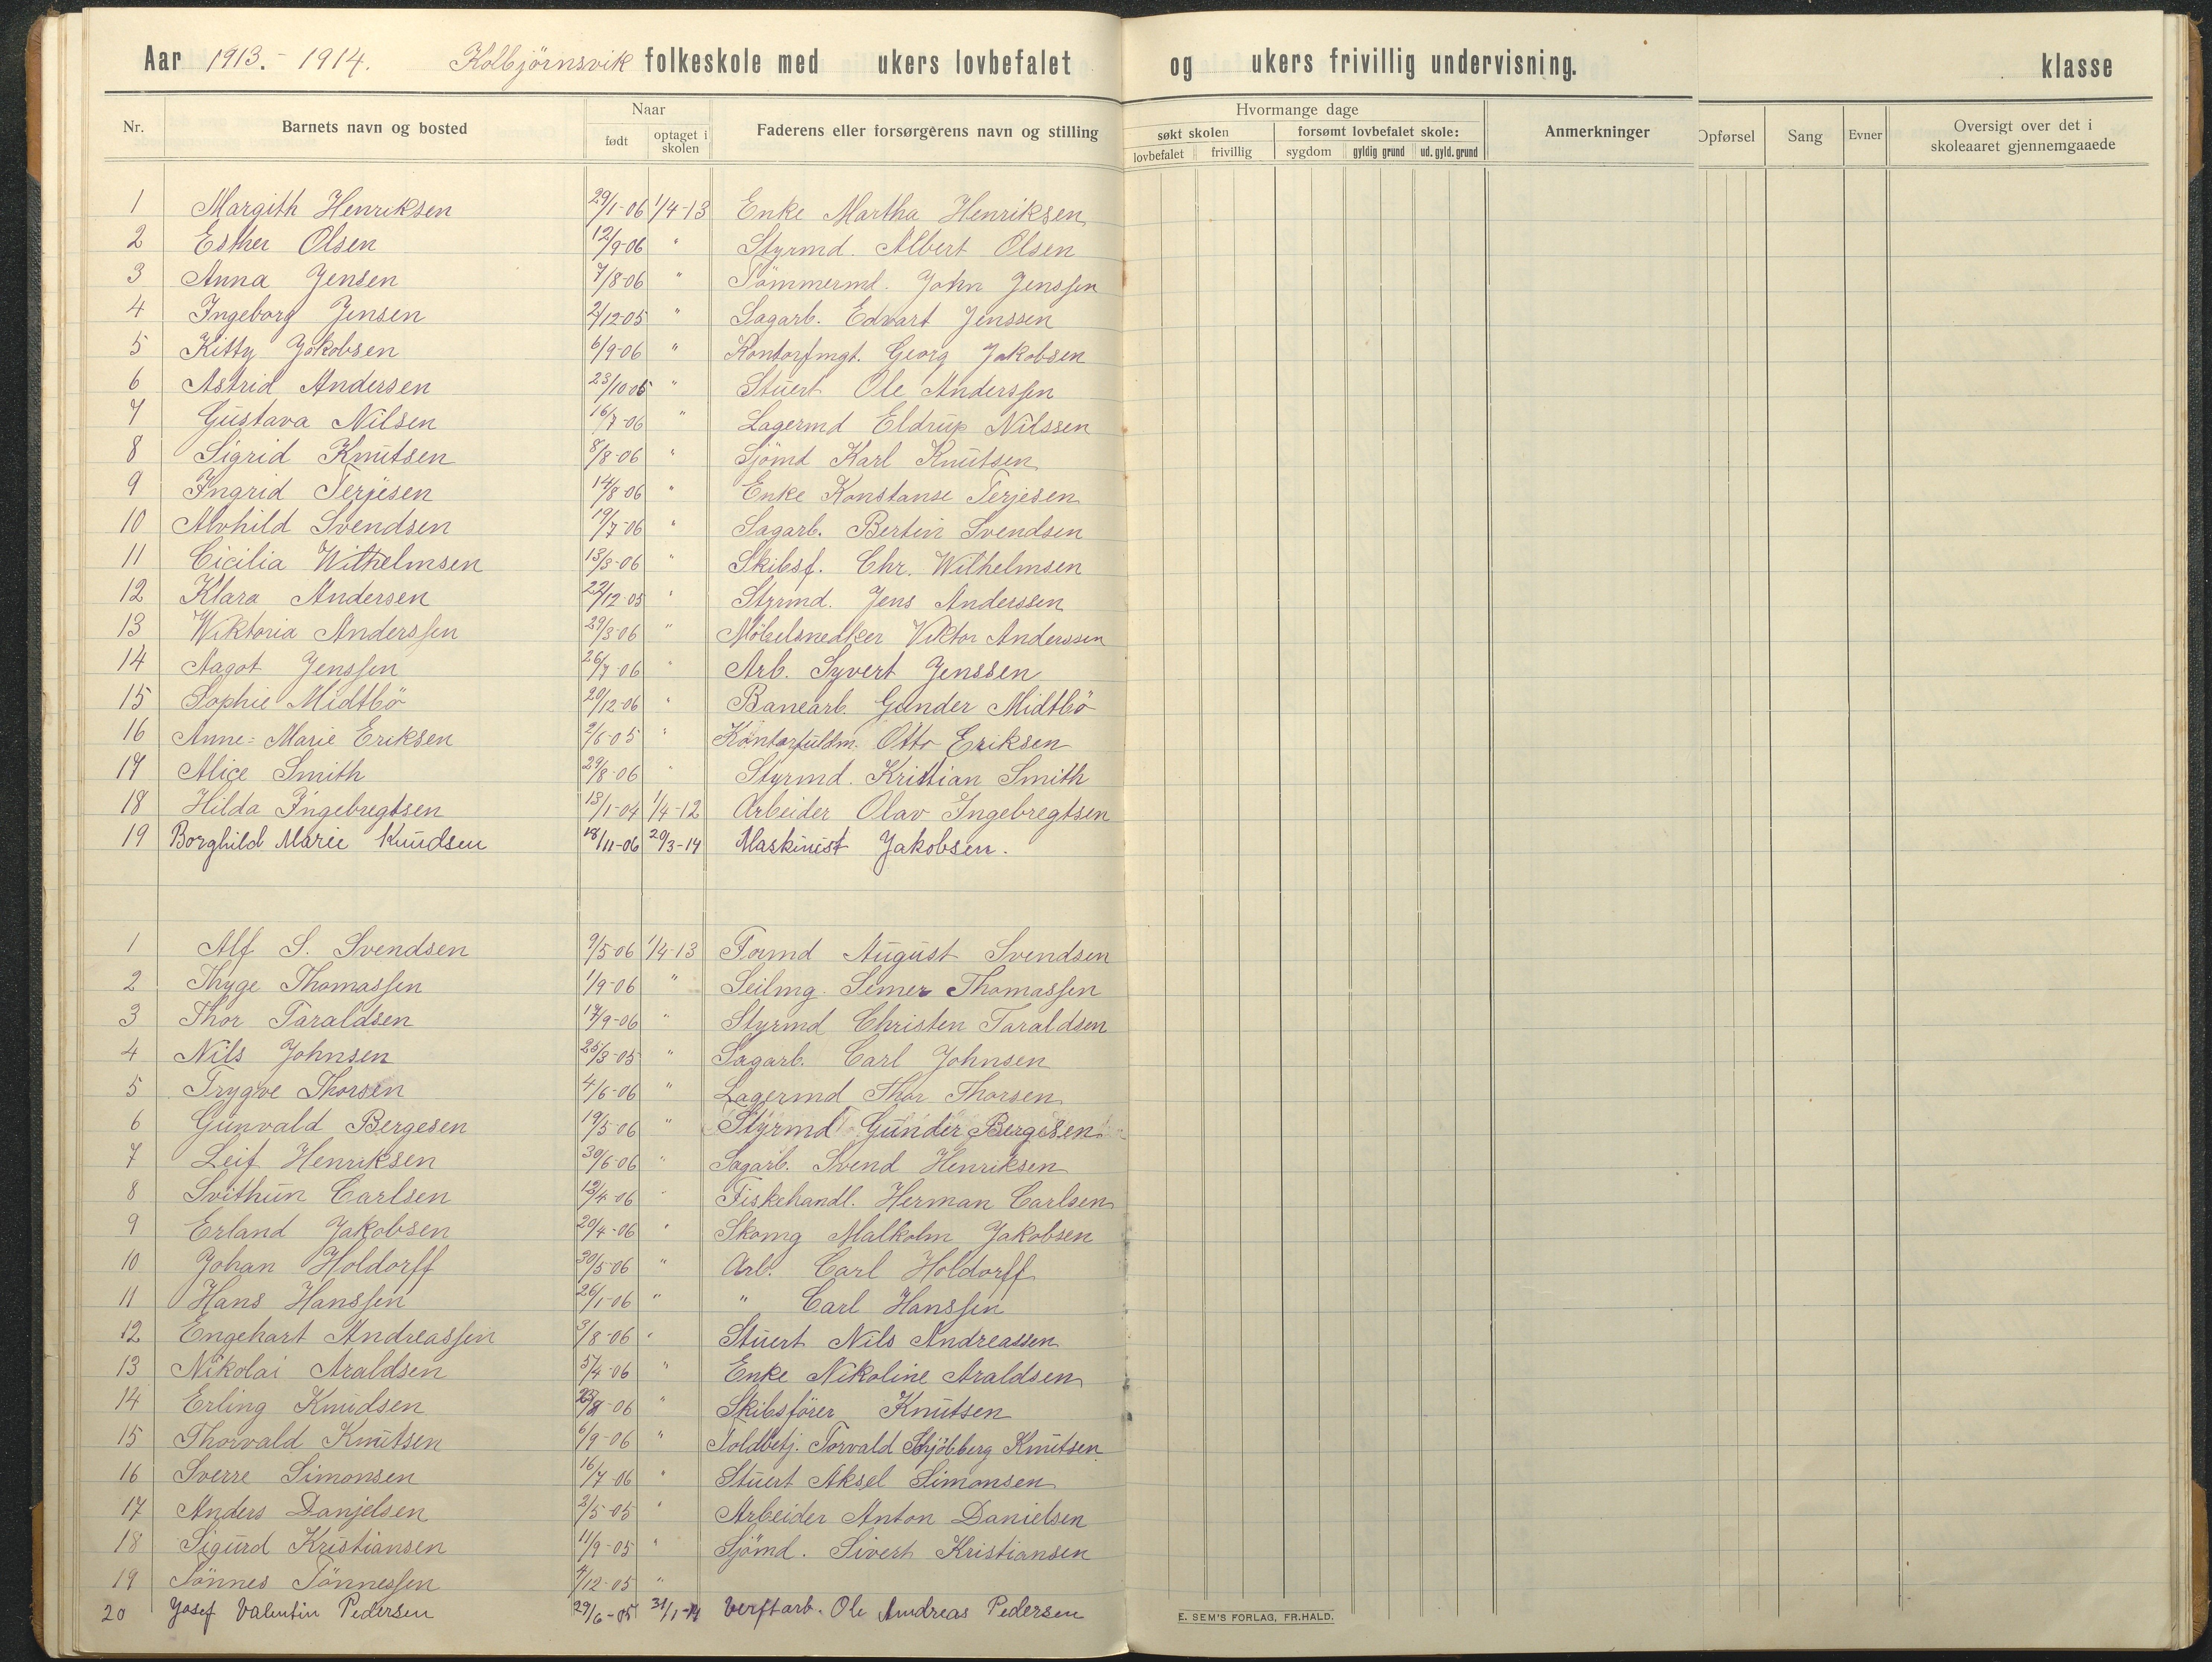 Aar 1913.-1914. Kolbjörnsvik folkeskole med ukers lovbefalet og ukers frivillig undervisning. klasse
Nr. Barnets navn og bosted Naar født optaget i skolen Faderens eller forsørgerens navn og stilling
Hvormange dage søkt skolen lovbefalet frivillig forsømt lovbefalet skole: sygdom gyldig grund ud. gyld. grund Anmerkninger Opførsel Sang Evner Oversigt over det i skoleaaret gjennemgaaede
1 Margith Henriksen 29/1-06 1/4-13 Enke Martha Henriksen
2 Esther Olsen 12/9-06 " Styrmd. Albert Olsen
3 Anna Jensen 7/8-06 " Tömmermd. John Jenssen
4 Ingeborg Jensen 2/12-05 " Sagarb. Edvart Jenssen
5 Kitty Jakobsen 6/9-06 " Kontorfmgt. Georg Jakobsen
6 Astrid Andersen 23/10-05 " Stuert Ole Anderssen
7 Gustava Nilsen 16/7-06 " Lagermd Eldrup Nilssen
8 Sigrid Knutsen 8/8-06 " Sjömd Karl Knutsen
9 Ingrid Terjesen 14/8-06 " Enke Konstanse Terjesen
10 Alvhild Svendsen 19/7-06 " Sagarb. Bertin Svendsen
11 Cicilia Wilhelmsen 13/3-06 " Skibsf. Chr. Wilhelmsen
12 Klara Andersen 22/12-05 " Styrmd. Jens Anderssen
13 Wiktoria Anderssen 29/3-06 " Möbelsnedker Viktor Anderssen
14 Aagot Jenssen 26/7-06 " Arb. Syvert Jenssen
15 Sophie Midtbö 20/12-06 " Banearb. Gunder Midtbö
16 Anne-Marie Eriksen 2/6-05 " Kontorfuldm. Otto Eriksen
17 Alice Smith 29/8-06 " Styrmd. Kristian Smith
18 Hilda Ingebregtsen 13/1-04 1/4-12 Arbeider Olav Ingebregtsen
19 Borghild Marie Knudsen 18/11-06 20/3-14 Maskinist Jakobsen.
1 Alf S. Svendsen 9/5-06 1/4-13 Formd August Svendsen
2 Thyge Thomassen 1/9-06 " Seilmg. Semer Thomassen
3 Thor Taraldsen 17/9-06 " Styrmd Christen Taraldsen
4 Nils Johnsen 25/3-05 " Sagarb. Carl Johnsen
5 Trygve Thorsen 4/6-06 " Lagermd Thor Thorsen
6 Gunvald Bergesen 19/5-06 " Styrmd Gunder Bergesen
7 Leif Henriksen 30/6-06 " Sagarb. Svend Henriksen
8 Svithun Carlsen 12/4-06 " Fiskehandl. Herman Carlsen
9 Erland Jakobsen 20/4-06 " Skomg Malkolm Jakobsen
10 Johan Holdorff 30/5-06 " Arb. Carl Holdorff
11 Hans Hanssen 26/1-06 " " Carl Hanssen
12 Engehart Andreassen 3/8-06 " Stuert Nils Andreassen
13 Nikolai Araldsen 5/4-06 " Enke Nikoline Araldsen
14 Erling Knudsen 23/8-06 " Skibsförer Knutsen
15 Thorvald Knutsen 6/9-06 " Toldbetj. Torvald Knutsen
16 Sverre Simonsen 16/7-06 " Stuert Aksel Simonsen
17 Anders Danjelsen 3/5-05 " Arbeider Anton Danielsen
18 Sigurd Kristiansen 11/9-05 " Sjömd. Sivert Kristiansen
19 Tönnes Tönnessen 4/12-05 "
20 Josef Valentin Pedersen 29/6-05 31/1-14 Verftarb. Ole Andreas Pedersen
E. SEM'S FORLAG, FR.HALD.